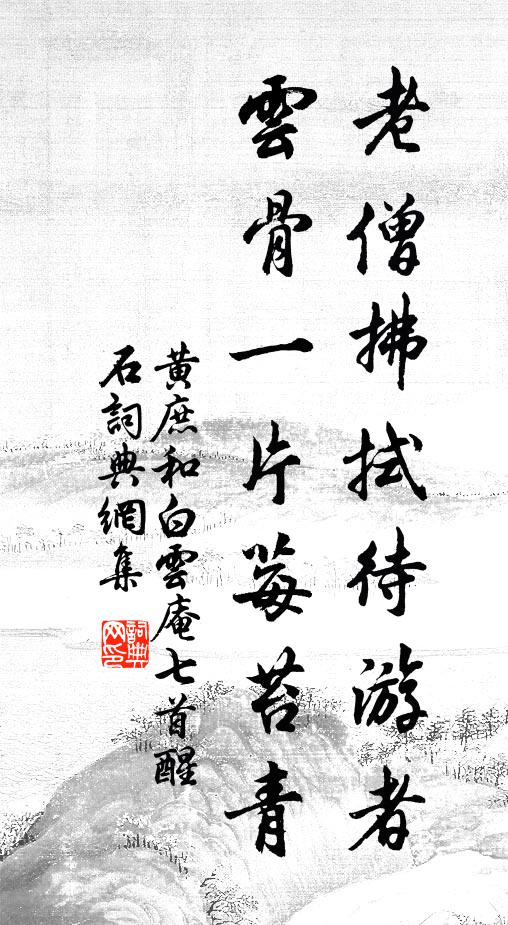 老僧拂拭待游者
雲骨一片莓苔青
黃庶和白雲庵七首醒
石詞典網集
詞典网印